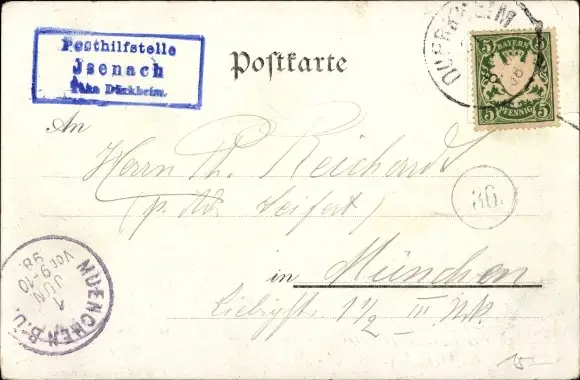 Posthilfstelle
Isenach
Taxe Dürkheim.
Postkarte
DUERKHEIM
98
5 BAYERN 5
5 PFENNIG 5
An
Herrn Th. Reichardt
(p. Ad. Seifert)
30.
in München
1 1/2 III
MUENCHEN B.U.
1 JUN.
Vor. 9-10
98.